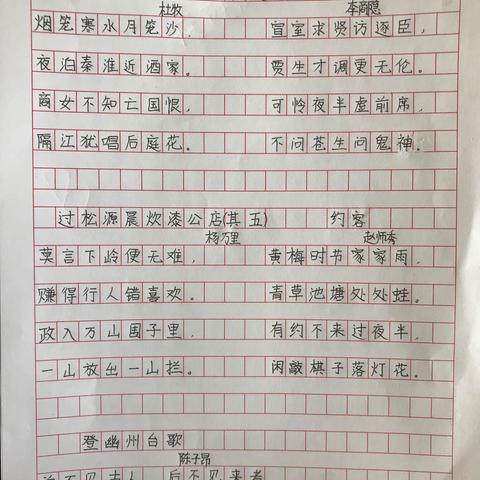 杜牧
烟笼寒水月笼沙，
夜泊秦淮近酒家。
商女不知亡国恨，
隔江犹唱后庭花。
李商隐
宣室求贤访逐臣，
贾生才调更无伦。
可怜夜半虚前席，
不问苍生问鬼神。
过松源晨炊漆公店(其五)
杨万里
莫言下岭便无难，
赚得行人错喜欢。
政入万山围子里，
一山放出一山拦。
约客
赵师秀
黄梅时节家家雨，
青草池塘处处蛙。
有约不来过夜半，
闲敲棋子落灯花。
登幽州台歌
陈子昂
前不见古人 后不见来者